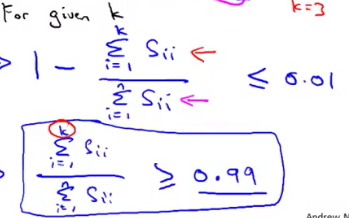 For given k
k=3
1 - \frac{\sum_{i=1}^{k} S_{ii}}{\sum_{i=1}^{n} S_{ii}} ≤ 0.01
\frac{\sum_{i=1}^{k} S_{ii}}{\sum_{i=1}^{n} S_{ii}} ≥ 0.99
Andrew N